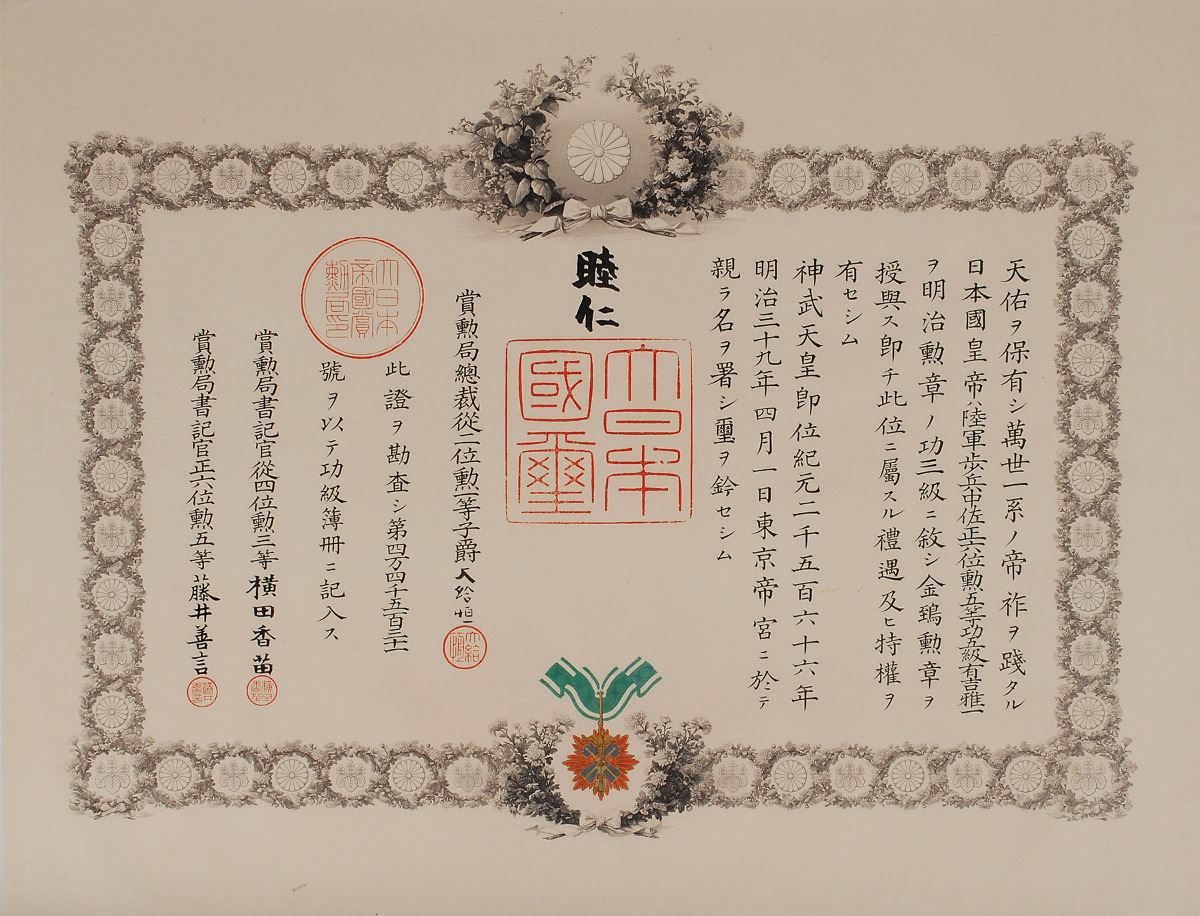 天佑ヲ保有シ萬世一系ノ帝祚ヲ踐タル
日本國皇帝ハ陸軍歩兵中佐正六位勲五等功五級有吉雅一
ヲ明治勲章ノ功三級ニ敘シ金鵄勲章ヲ
授與ス卽チ此位ニ屬スル禮遇及ヒ特權ヲ
有セシム
神武天皇卽位紀元二千五百六十六年
明治三十九年四月一日東京帝宮ニ於テ
親ラ名ヲ署シ璽ヲ鈐セシム
睦仁
大日本
國璽
賞勲局總裁從二位勲一等子爵大給恒
大給
恒
此證ヲ勘査シ第四万四千五百三十一
號ヲ以テ功級簿册ニ記入ス
大日本
帝國賞
勲局印
賞勲局書記官從四位勲三等横田香苗
賞勲局書記官正六位勲五等藤井善言